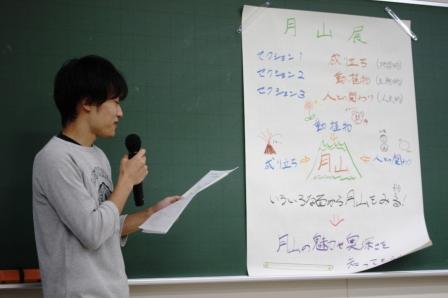 月山展
セクション1 成り立ち(地理的)
セクション2 動植物(生物的)
セクション3 人との関わり(人文的)
動植物
成り立ち → 月山 ← 人との関わり
いろいろな面から月山をみる!
月山の魅力や奥深さを
知って